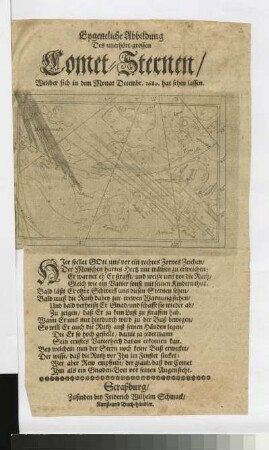 Eygentliche Abbildung
Des unerhört-grossen
Comet-Sternen/
Welcher sich in dem Monat Decembr. 1680. hat sehen lassen.
Hier stellet GOtt uns vor ein rechtes Zornes Zeichen/
Der Menschen hartes Hertz mit tränen zu erweichen:
Er warnet eh Er strafft/ und weißt uns vor die Ruth/
Gleich wie ein Vatter sonst mit seinen Kindern thut.
Bald läßt Er ohne Schweiff uns diesen Sternen sehen/
Bald muß die Ruth dabey zur trewen Warnung stehen/
Und bald verheißt Er Gnad/ und schafft sie wieder ab/
Zu zeigen/ daß Er ja kein Lust zu straffen hab.
Wann Er uns nur hierdurch wird zu der Buß bewegen/
So will Er auch die Ruth auß seinen Händen legen/
Die Er so hoch gestellt/ damit zu jederman
Sein ernstes Vatterhertz daran erkennen kan.
Bey welchem nun der Stern noch keine Buß erwecket/
Der wisse/ daß die Ruth vor Ihn im Fenster stecket:
Wer aber Rew empfindt/ der glaub/ daß der Comet
Ihm als ein Gnaden-Bott vor seinen Augen steht.
Straßburg/
Zufinden bey Friderich Wilhelm Schmuck/
Kunst- und Buch-Händlern.